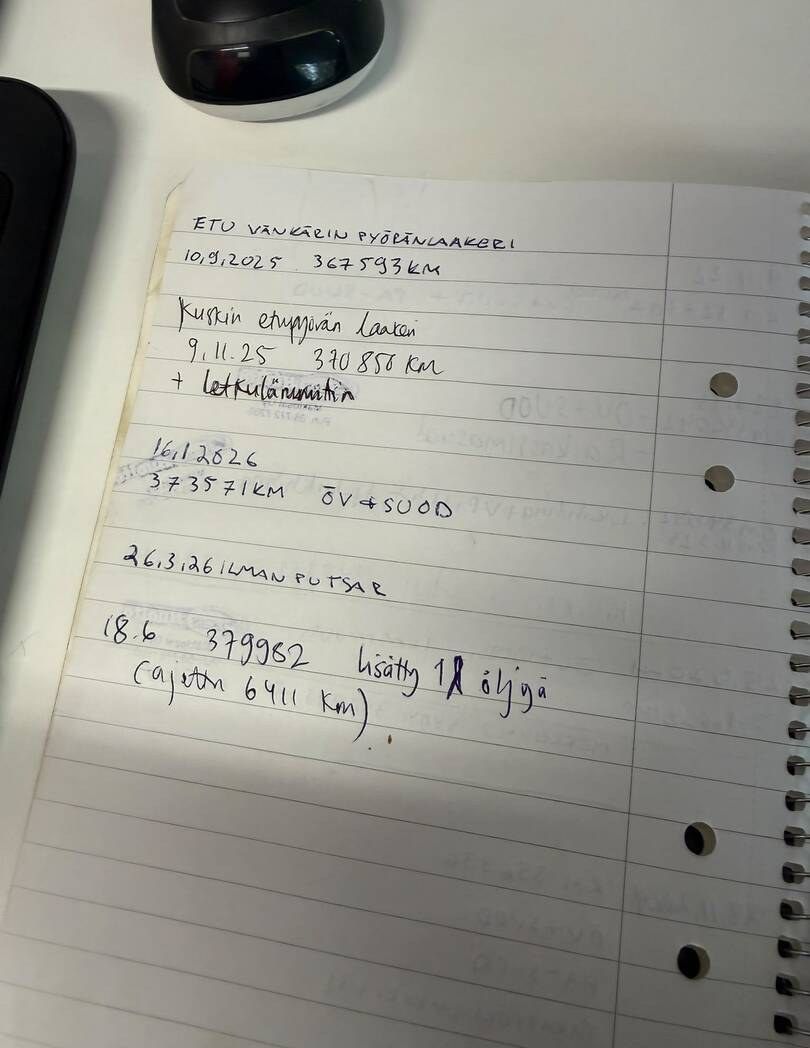 ETU VÄNKÄRIN PYÖRÄNLAAKERI
10,9,2025 367593KM
Kuskin etupyörän laakeri
9.11.25 370850 KM
+ letkulämmitin
16,1 2026
373571KM ÖV + SUOD
26,3,26 ILMAN PUTSAR
18.6 379982 lisätty 1l öljyä
(ajettu 6411 km)